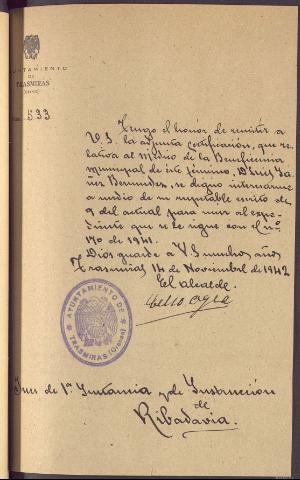 AYUNTAMIENTO
DE
TRASMIRAS
(Orense)
533
Tengo el honor de remitir a
V.S. la adjunta certificación, que re-
lativa al Médico de la Beneficencia
Municipal de este término, D. Luis
Bermudez, se digno interesarme
a medio de su respetable escrito del
9 del actual para unir al expe-
diente que se le sigue con el nº
170 de 1941.
Dios guarde a V S muchos años
Trasmiras 14 de Noviembre de 1942
El alcalde.
AYUNTAMIENTO DE
TRASMIRAS (Orense)
Juez de 1ª Instancia y de Instrucción
de
Ribadavia.